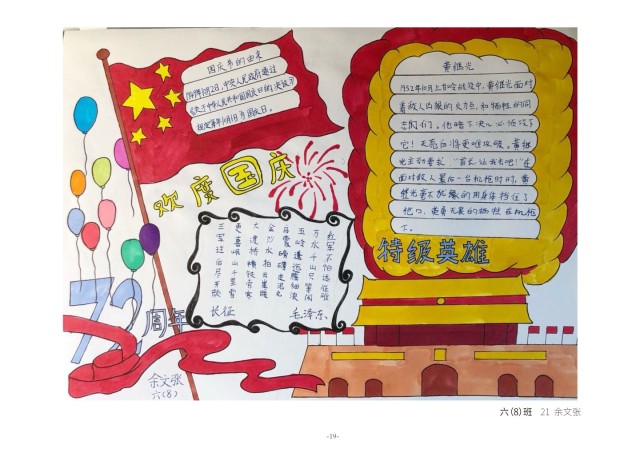 国庆节的由来
1949年10月2日,中央人民政府通过
《关于中华人民共和国国庆日的决议》
规定每年10月1日为国庆日。
欢度国庆
红军不怕远征难
万水千山只等闲
五岭逶迤腾细浪
乌蒙磅礴走泥丸
金沙水拍云崖暖
大渡桥横铁索寒
更喜岷山千里雪
三军过后尽开颜
长征 毛泽东
72周年
余文张
六(8)
黄继光
1952年10月上甘岭战役中,黄继光面对
着敌人凶狠的火力点,和牺牲的同
志们。他暗下决心必须攻下
它!天亮后将更难攻破。黄继
光主动要求“首长让我去吧!”在
面对敌人最后一台机枪时,黄
继光奋不顾身的用身体挡住了
枪口,英勇无畏的牺牲在机枪
下。
特级英雄
六(8)班 21 余文张
-19-